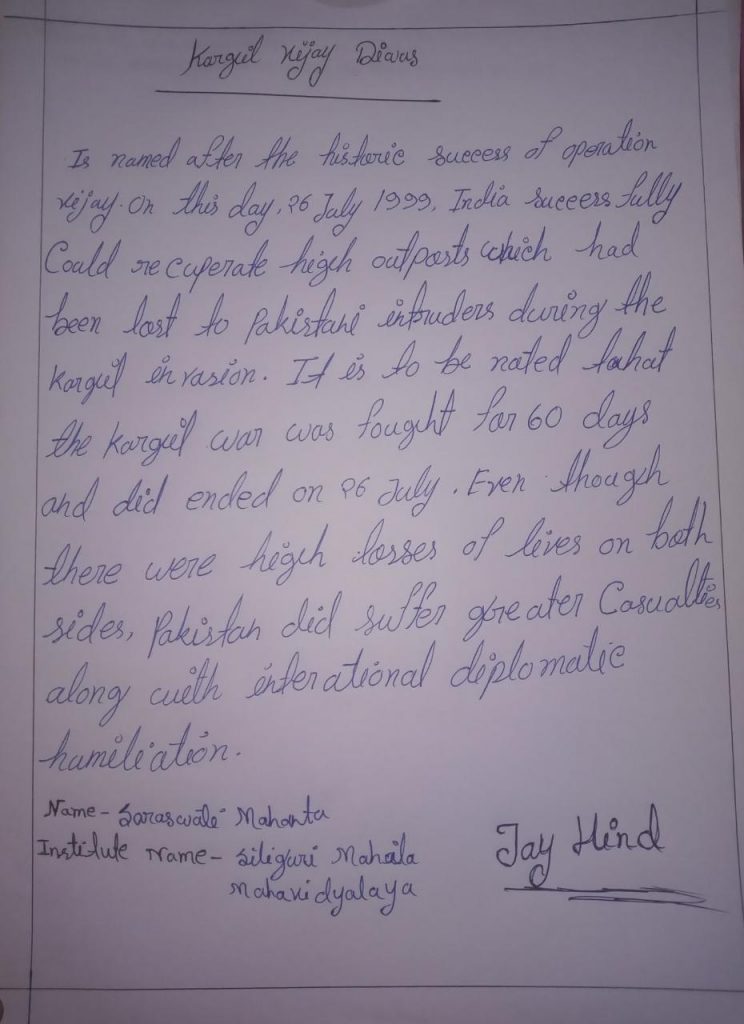 Kargil Vijay Diwas
Is named after the historic success of operation
vijay. On this day, 26 July 1999, India successfully
Could recuperate high outposts which had
been lost to Pakistani intruders during the
Kargil invasion. It is to be noted tahat
the Kargil war was fought for 60 days
and did ended on 26 July. Even though
there were high losses of lives on both
sides, Pakistan did suffer greater Casualties
along with interational diplomatic
humiliation.
Name - Saraswati Mahanta
Institute Name - Siliguri Mahaila
Mahavidyalaya
Jay Hind